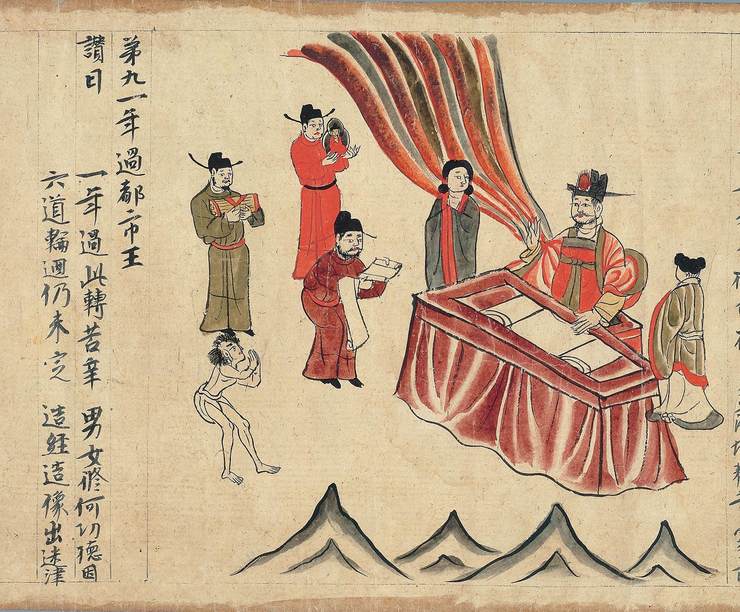 第九一年過都市王
讚曰
一年過此轉苦辛　男女修何功德因
六道輪迴仍未定　造經造像出迷津